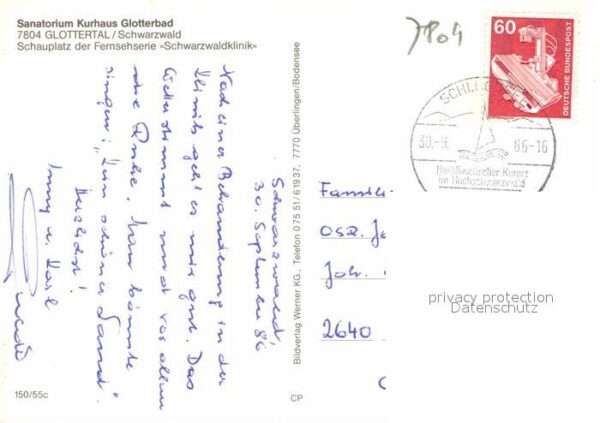 Sanatorium Kurhaus Glotterbad
7804 GLOTTERTAL / Schwarzwald
Schauplatz der Fernsehserie »Schwarzwaldklinik«
7804
60
DEUTSCHE BUNDESPOST
SCHLU
30.-9. 86-16
Heilklimatischer Kurort
im Hochschwarzwald
Schwarzwald,
30. September 86
Nach einer Behandlung in der
Klinik geht es mir gut. Das
Wetter stimmt und vor allem
die Ruhe. Man könnte
singen: "Kein schöner Land".
Herzlichst!
Inny u. Karl
Bildverlag Werner KG., Telefon 0 75 51 / 6 19 37, 7770 Überlingen/Bodensee
Familie
OSR. Jo
Joh.
2640
privacy protection
Datenschutz
150/55c
CP